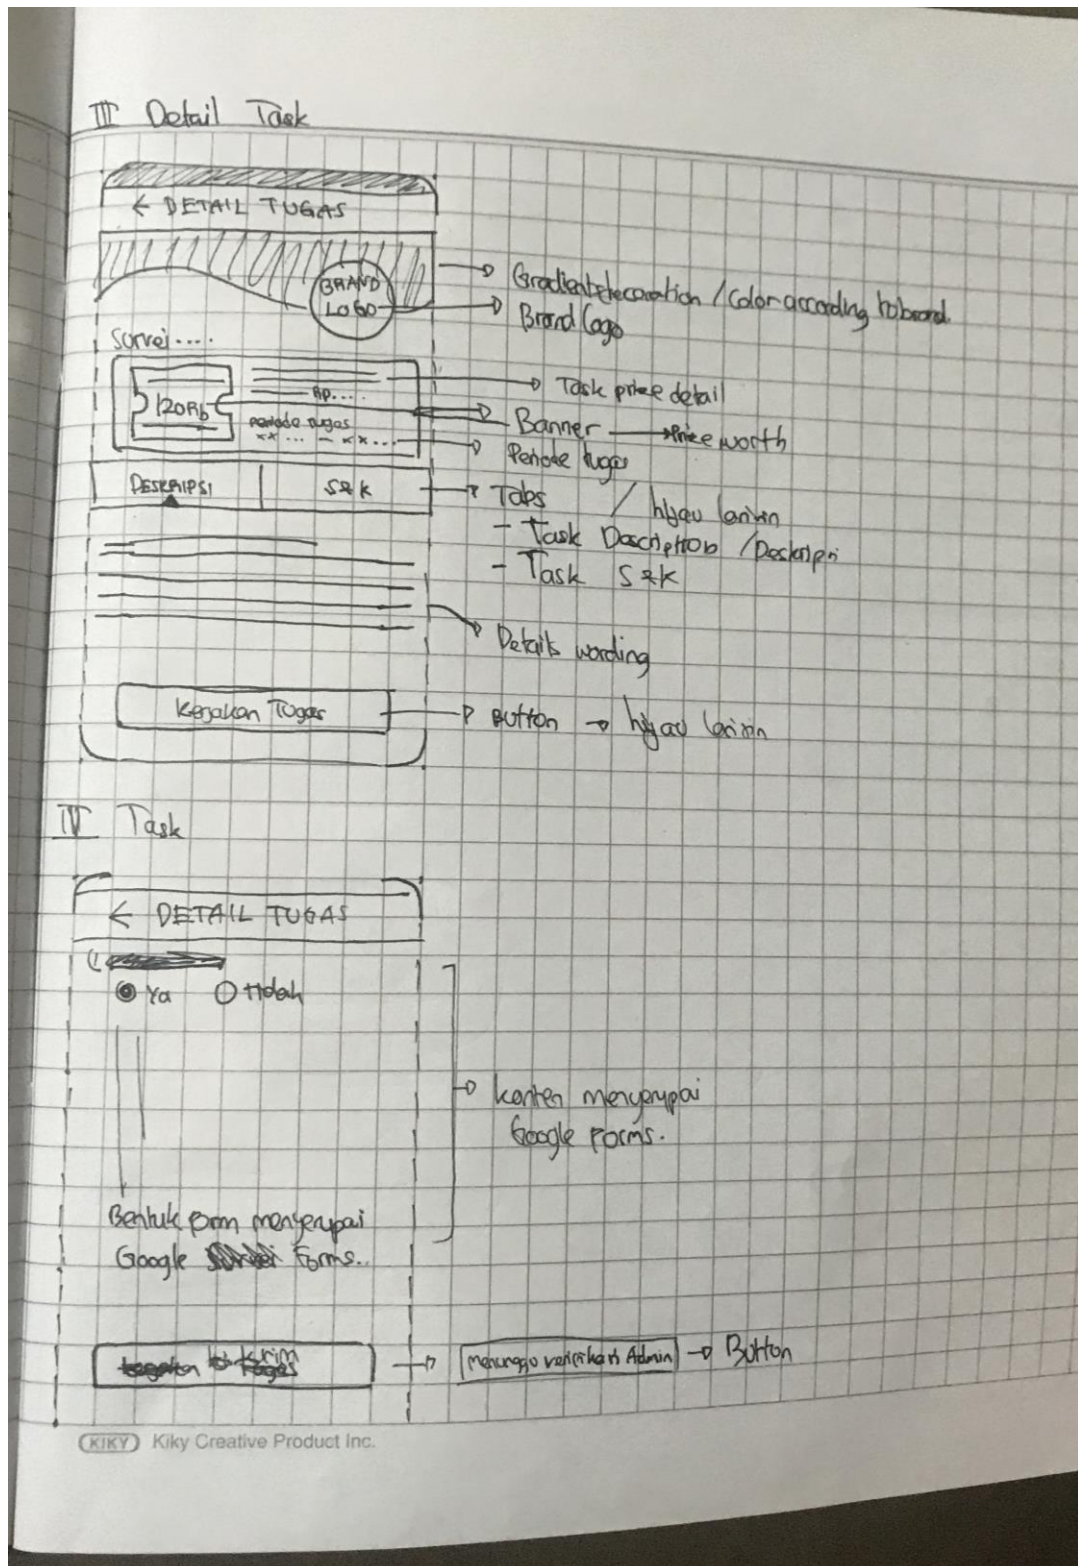 III Detail Task
← DETAIL TUGAS
BRAND
LOGO
Gradient decoration / Color according to brand
Brand logo
Survei....
120Rb
Rp....
Periode tugas
xx ... - xx...
Task prize detail
Banner → Prize worth
Periode tugas
DESKRIPSI
S&K
Tabs / hijau
- Task Description / Deskripsi
- Task S&K
Details wording
Kerjakan Tugas
Button → hijau
IV Task
← DETAIL TUGAS
Ya
Tidak
Konten menyerupai
Google Forms.
Bentuk Form menyerupai
Google Forms..
Kirim
Tugas
Menunggu verifikasi Admin → Button
KIKY Kiky Creative Product Inc.